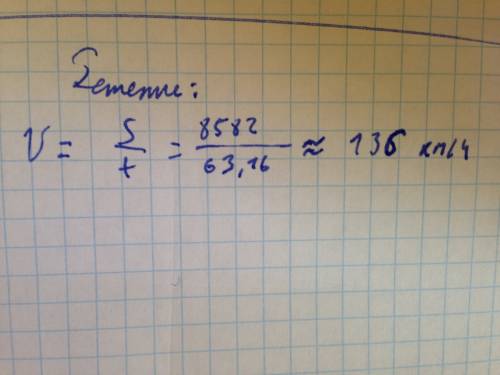 Решение:
V = S/t = 8582/63,16 ≈ 136 км/ч